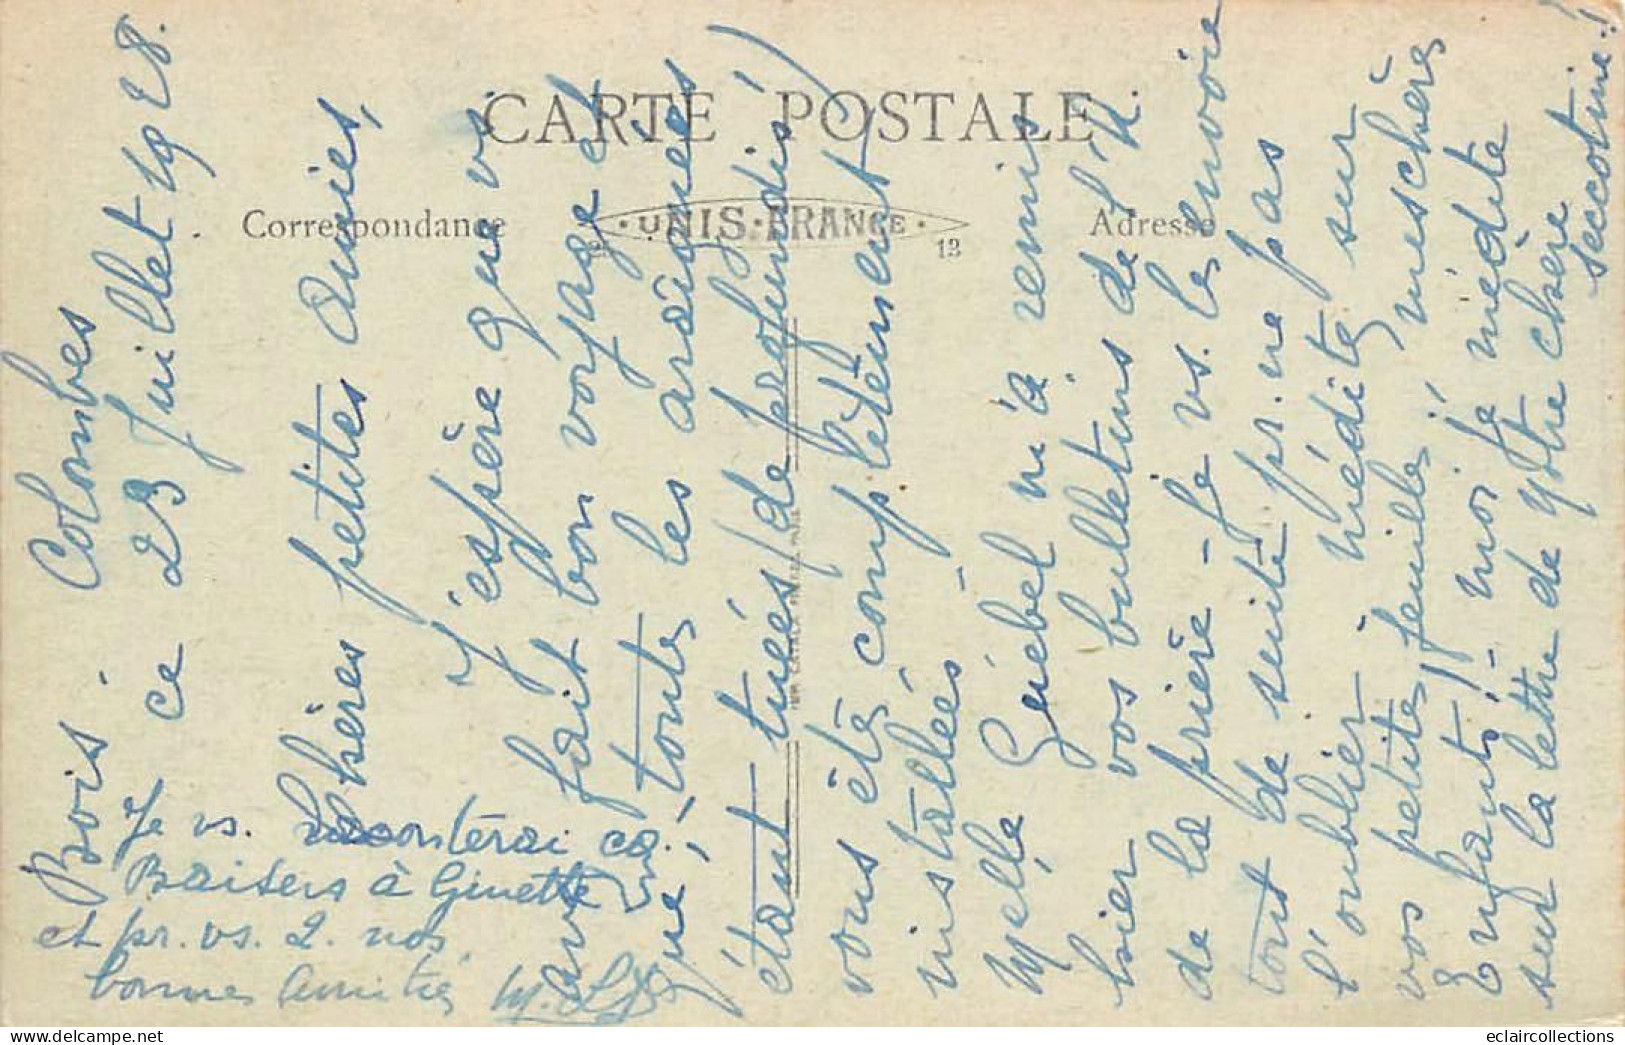 CARTE POSTALE
Correspondance
UNIS-FRANCE
13
Adresse
Bois Colombes
ce 23 Juillet 1928.
Chères petites Amies,
J'espère que vs
avez fait bon voyage et
que, toutes les araignées
étant tuées (de profundis!)
vous êtes complètement
installées
Melle Guébel m'a remis
hier vos bulletins de l'A.
de la prière - Je vs. les envoie
tout de suite pr. ne pas
l'oublier. Méditez sur
vos petites feuilles, mes chères
Enfants! - moi je médite
sur la lettre de votre chère
seccotine!!
Je vs. raconterai ça.
Baisers à Ginette
et pr. vs. 2. nos
bonnes amitiés
IMP. CATALA FRERES PARIS
eclaircollections